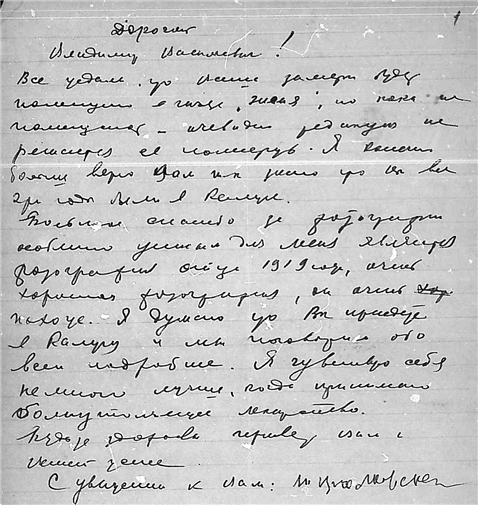 1
Дорогой
Владимир Васильевич!
Все ждали, что ваша заметка будет
помещена в газете „Знамя“, но пока не
помещают – очевидно редакция не
решается её поместить. Я конечно
больше верю Вам т.к. знаю что вы
три года были в Калуге.
Большое спасибо за фотографии
особенно для меня является
фотография отца 1919 года, очень
хорошая фотография, он очень
похож. Я думаю что Вы приедете
в Калугу и мы поговорим обо
всём подробнее. Я чувствую себя
немного лучше, когда принимаю
лекарство.
Будьте здоровы привет вам и
вашей
С уважением к вам: